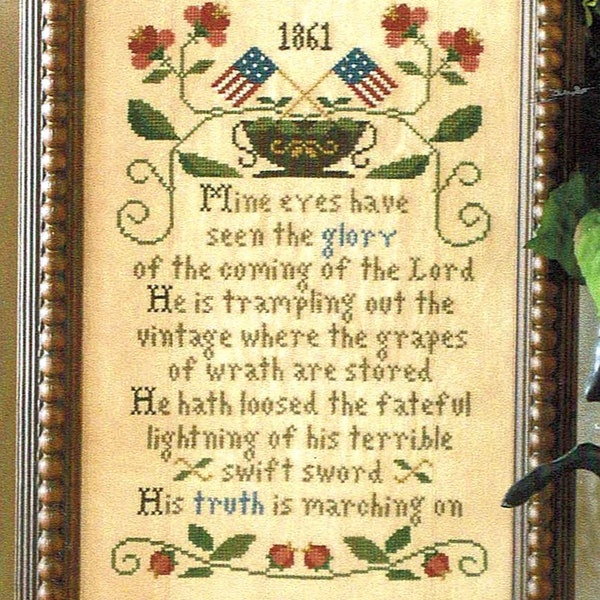 1861
Mine eyes have
seen the glory
of the coming of the Lord
He is trampling out the
vintage where the grapes
of wrath are stored
He hath loosed the fateful
lightning of his terrible
swift sword
His truth is marching on